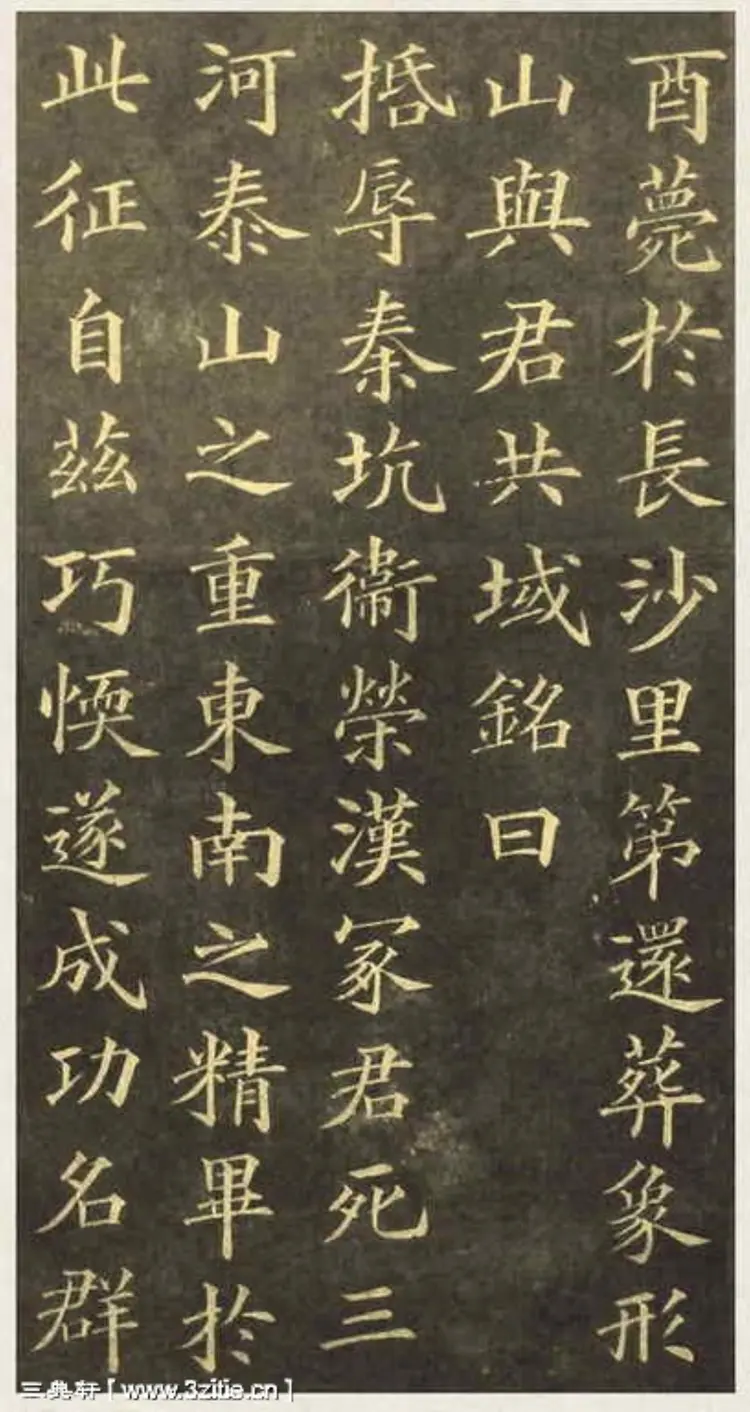 酉薨於長沙里第還葬象形
山與君共域銘曰
捂辱秦坑衞榮漢冢君死三
河泰山之重東南之精畢於
此征自茲巧愞遂成功名群
三典轩[www.3zitie.cn]